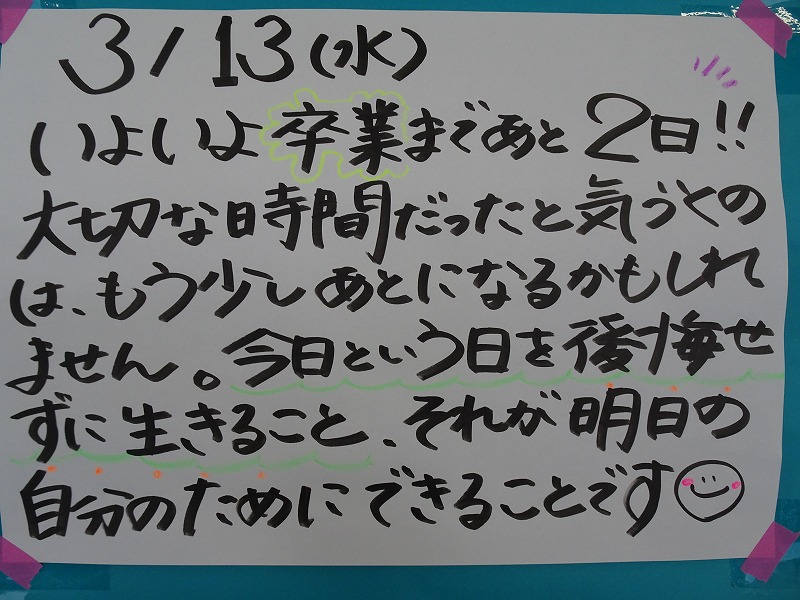 3/13(水)
いよいよ卒業まであと2日!!
大切な時間だったと気づくの
は、もう少しあとになるかもしれ
ません。今日という日を後悔せ
ずに生きること、それが明日の
自分のためにできることです